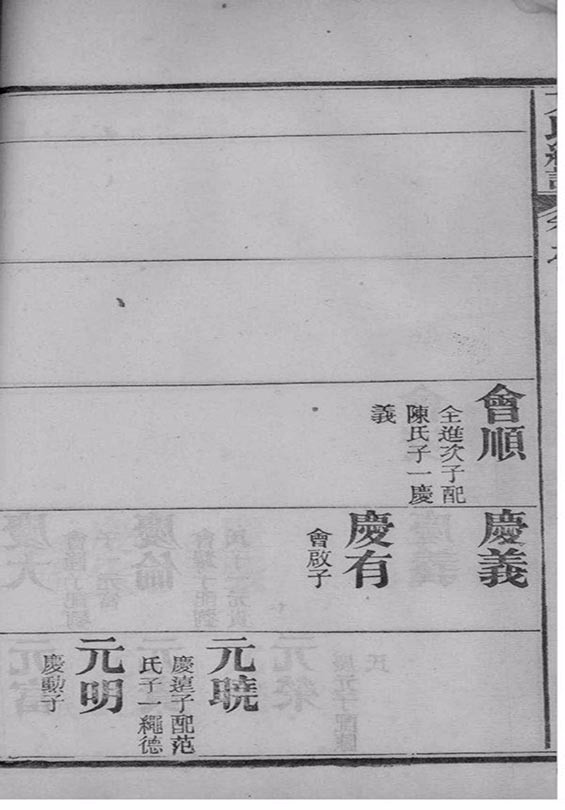 會順
全進次子配
陳氏子一慶
義
慶義
慶有
會啟子
元曉
慶違子配范
氏子一繩德
元明
慶勳子